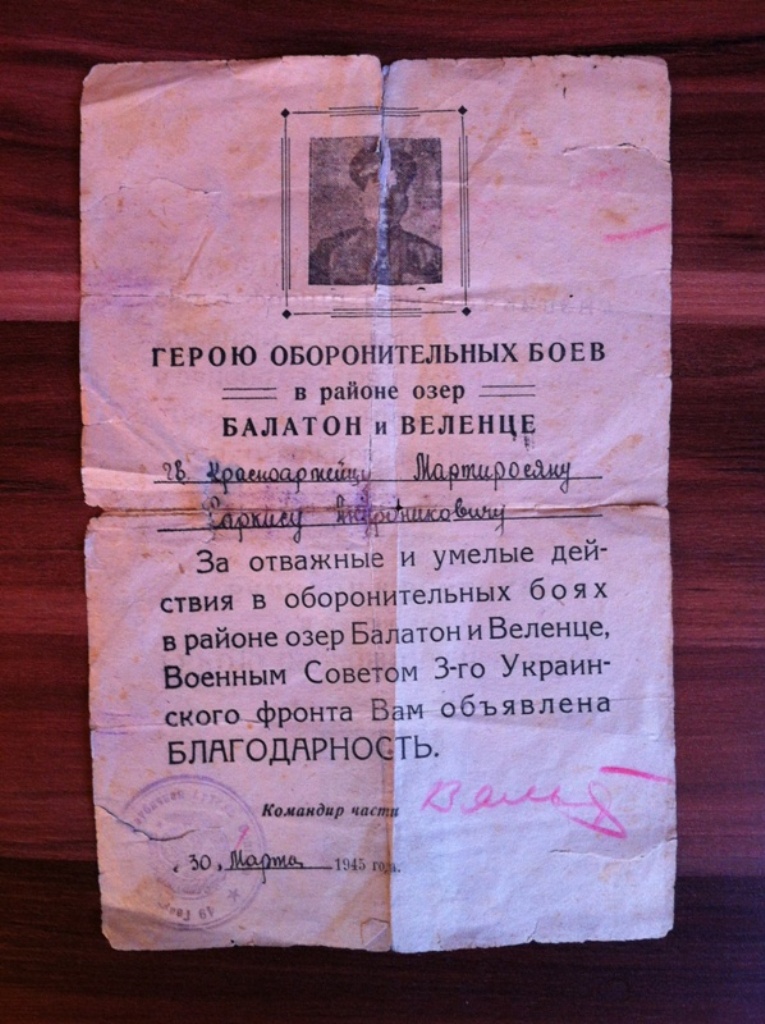 ГЕРОЮ ОБОРОНИТЕЛЬНЫХ БОЕВ
в районе озер
БАЛАТОН и ВЕЛЕНЦЕ
гв. Красноармейцу Мартиросяну
Саркису Андрониковичу
За отважные и умелые дей-
ствия в оборонительных боях
в районе озер Балатон и Веленце,
Военным Советом 3-го Украин-
ского фронта Вам объявлена
БЛАГОДАРНОСТЬ.
Командир части
„30„ Марта 1945 года.